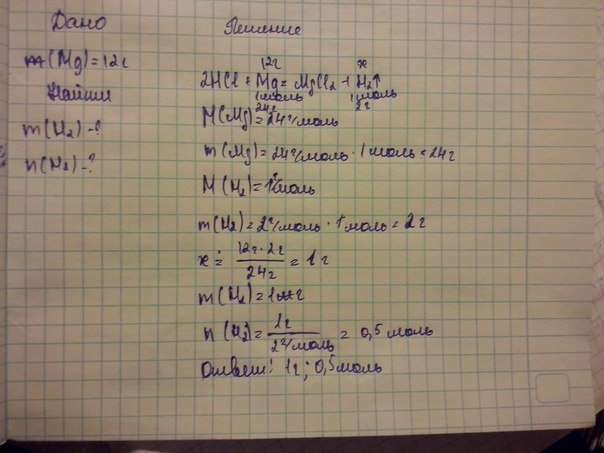 Дано
m(Mg)=12г
Найти
m(H2)-?
n(H2)-?
Решение
12г x
2HCl + Mg = MgCl2 + H2↑
1моль 1моль
24г 2г
M(Mg)=24г/моль
m(Mg)=24г/моль · 1моль = 24г
M(H2)=г/моль
m(H2)=2г/моль · 1моль = 2г
x = 12г·2г / 24г = 1г
m(H2)=1г
n(H2)= 1г / 2г/моль = 0,5 моль
Ответ: 1г; 0,5моль